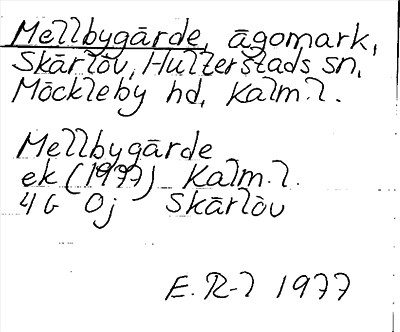 Mellbygårde, ägomark,
Skärlöv, Hulterstads sn,
Möckleby hd, Kalm. l.
Mellbygårde
ek (1977) Kalm. l.
4G 0j Skärlöv
E. R-l 1977